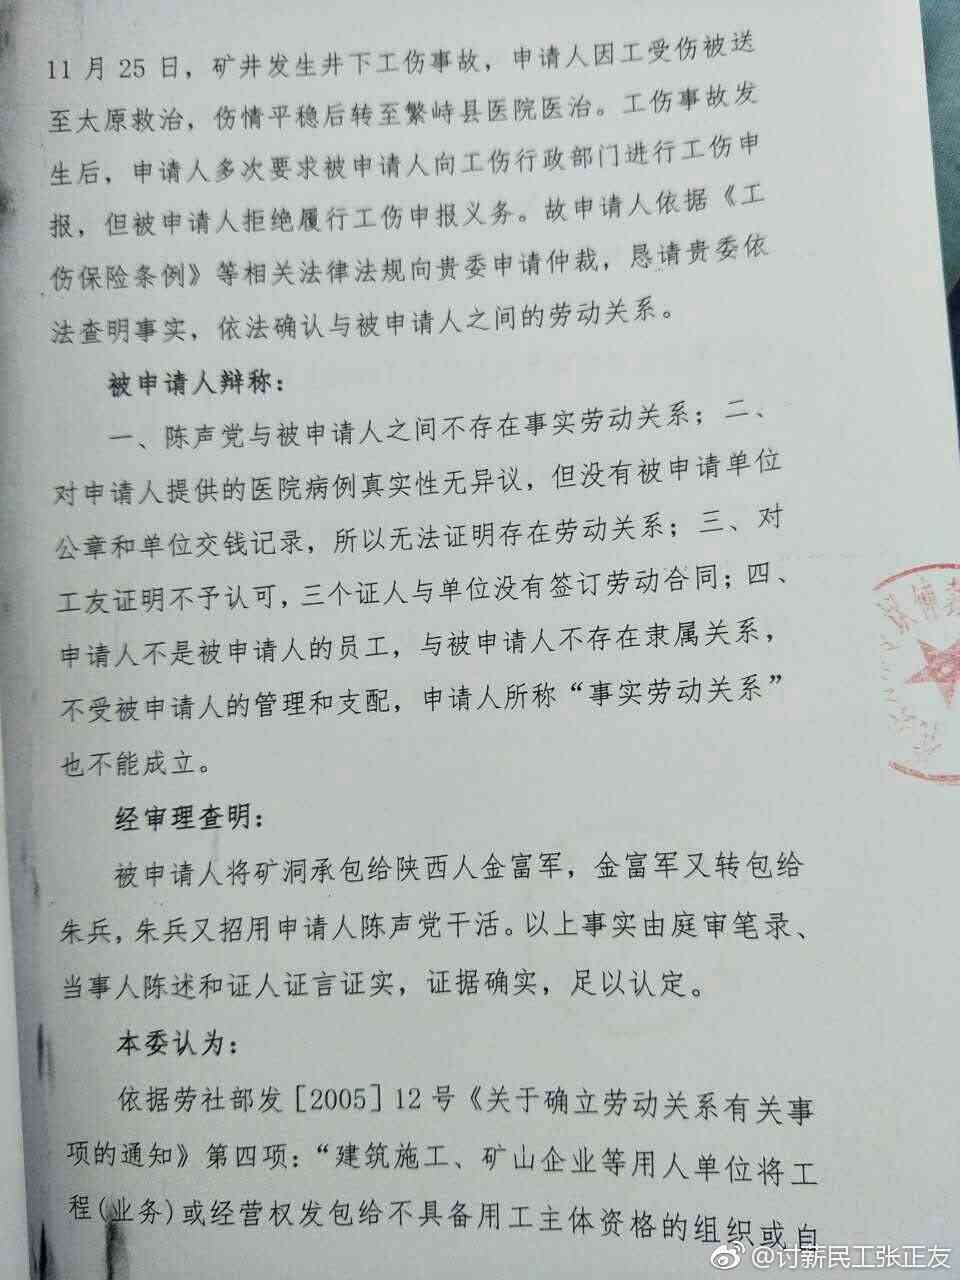 11月25日，矿井发生井下工伤事故，申请人因工受伤被送
至太原救治，伤情平稳后转至繁峙县医院医治。工伤事故发
生后，申请人多次要求被申请人向工伤行政部门进行工伤申
报，但被申请人拒绝履行工伤申报义务。故申请人依据《工
伤保险条例》等相关法律法规向贵委申请仲裁，恳请贵委依
法查明事实，依法确认与被申请人之间的劳动关系。
被申请人辩称：
一、陈声党与被申请人之间不存在事实劳动关系；二、
对申请人提供的医院病例真实性无异议，但没有被申请单位
公章和单位交钱记录，所以无法证明存在劳动关系；三、对
工友证明不予认可，三个证人与单位没有签订劳动合同；四、
申请人不是被申请人的员工，与被申请人不存在隶属关系，
不受被申请人的管理和支配，申请人所称“事实劳动关系”
也不能成立。
经审理查明：
被申请人将矿洞承包给陕西人金富军，金富军又转包给
朱兵，朱兵又招用申请人陈声党干活。以上事实由庭审笔录、
当事人陈述和证人证言证实，证据确实，足以认定。
本委认为：
依据劳社部发［2005］12号《关于确立劳动关系有关事
项的通知》第四项：“建筑施工、矿山企业等用人单位将工
程(业务)或经营权发包给不具备用工主体资格的组织或自
@讨薪民工张正友